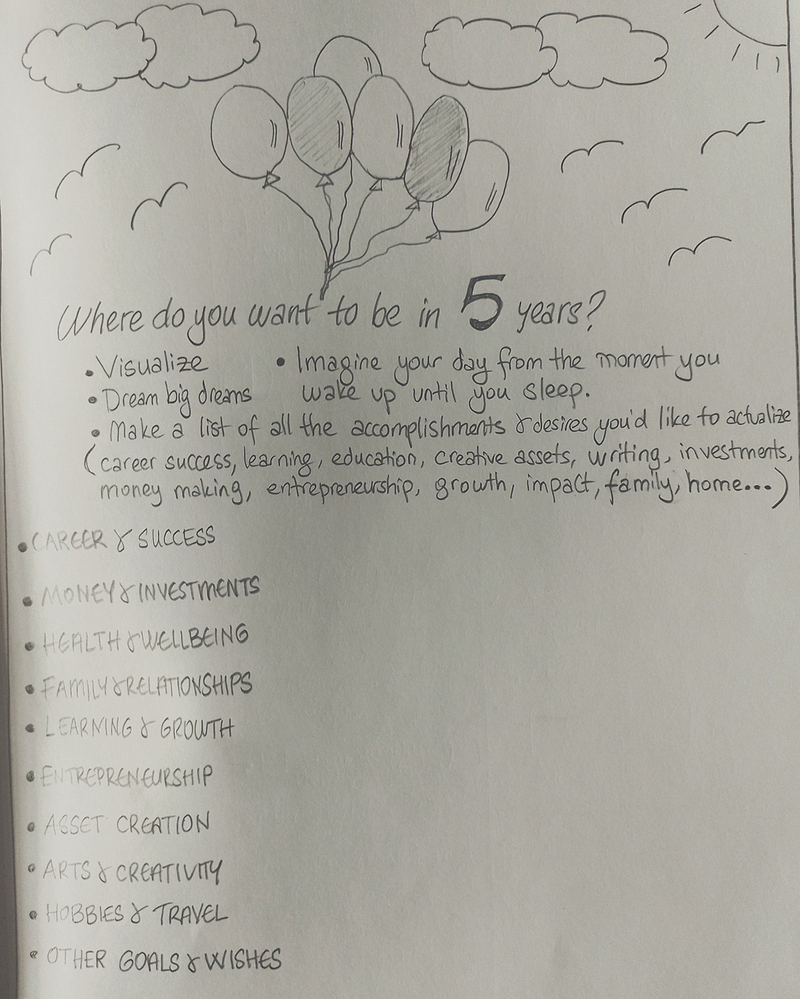 Where do you want to be in 5 years?
• Visualize
• Dream big dreams
• Imagine your day from the moment you
wake up until you sleep.
• Make a list of all the accomplishments & desires you'd like to actualize
(career success, learning, education, creative assets, writing, investments,
money making, entrepreneurship, growth, impact, family, home...)
• CAREER & SUCCESS
• MONEY & INVESTMENTS
• HEALTH & WELLBEING
• FAMILY & RELATIONSHIPS
• LEARNING & GROWTH
• ENTREPRENEURSHIP
• ASSET CREATION
• ARTS & CREATIVITY
• HOBBIES & TRAVEL
• OTHER GOALS & WISHES